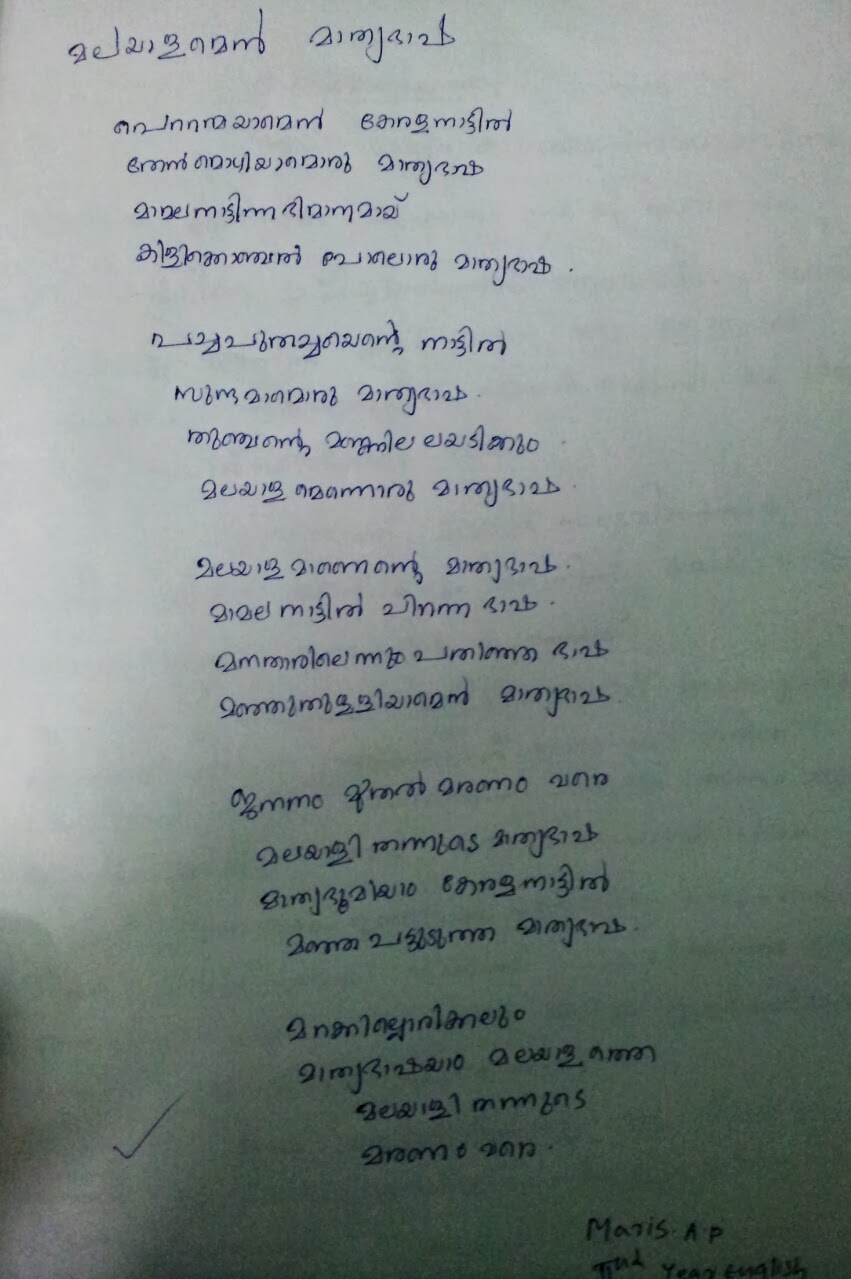 മലയാളമെൻ മാതൃഭാഷ
പെററമ്മയാമെൻ കേരളനാട്ടിൽ
തേൻമൊഴിയാമൊരു മാതൃഭാഷ
മാമലനാട്ടിന്നഭിമാനമായ്
കിളിക്കൊഞ്ചൽ പോലൊരു മാതൃഭാഷ .
പച്ചപുതച്ചയെന്റെ നാട്ടിൽ
സുന്ദമാമൊരു മാതൃഭാഷ .
തുഞ്ചന്റെ മണ്ണില ലയടിക്കും .
മലയാള മെന്നൊരു മാതൃഭാഷ .
മലയാള മാണെന്റെ മാതൃഭാഷ .
മാമല നാട്ടിൽ പിറന്ന ഭാഷ .
മനതാരിലെന്നും പതിഞ്ഞ ഭാഷ
മഞ്ഞുതുള്ളിയാമെൻ മാതൃഭാഷ .
ജനനം മുതൽ മരണം വരെ
മലയാളി തന്നുടെ മാതൃഭാഷ
മാതൃഭൂമിയാം കേരളനാട്ടിൽ
മഞ്ഞ പട്ടുടുത്ത മാതൃഭാഷ .
മറക്കില്ലൊരിക്കലും
മാതൃഭാഷയാം മലയാളത്തെ
മലയാളി തന്നുടെ
മരണം വരെ .
Maris A P
IInd Year English